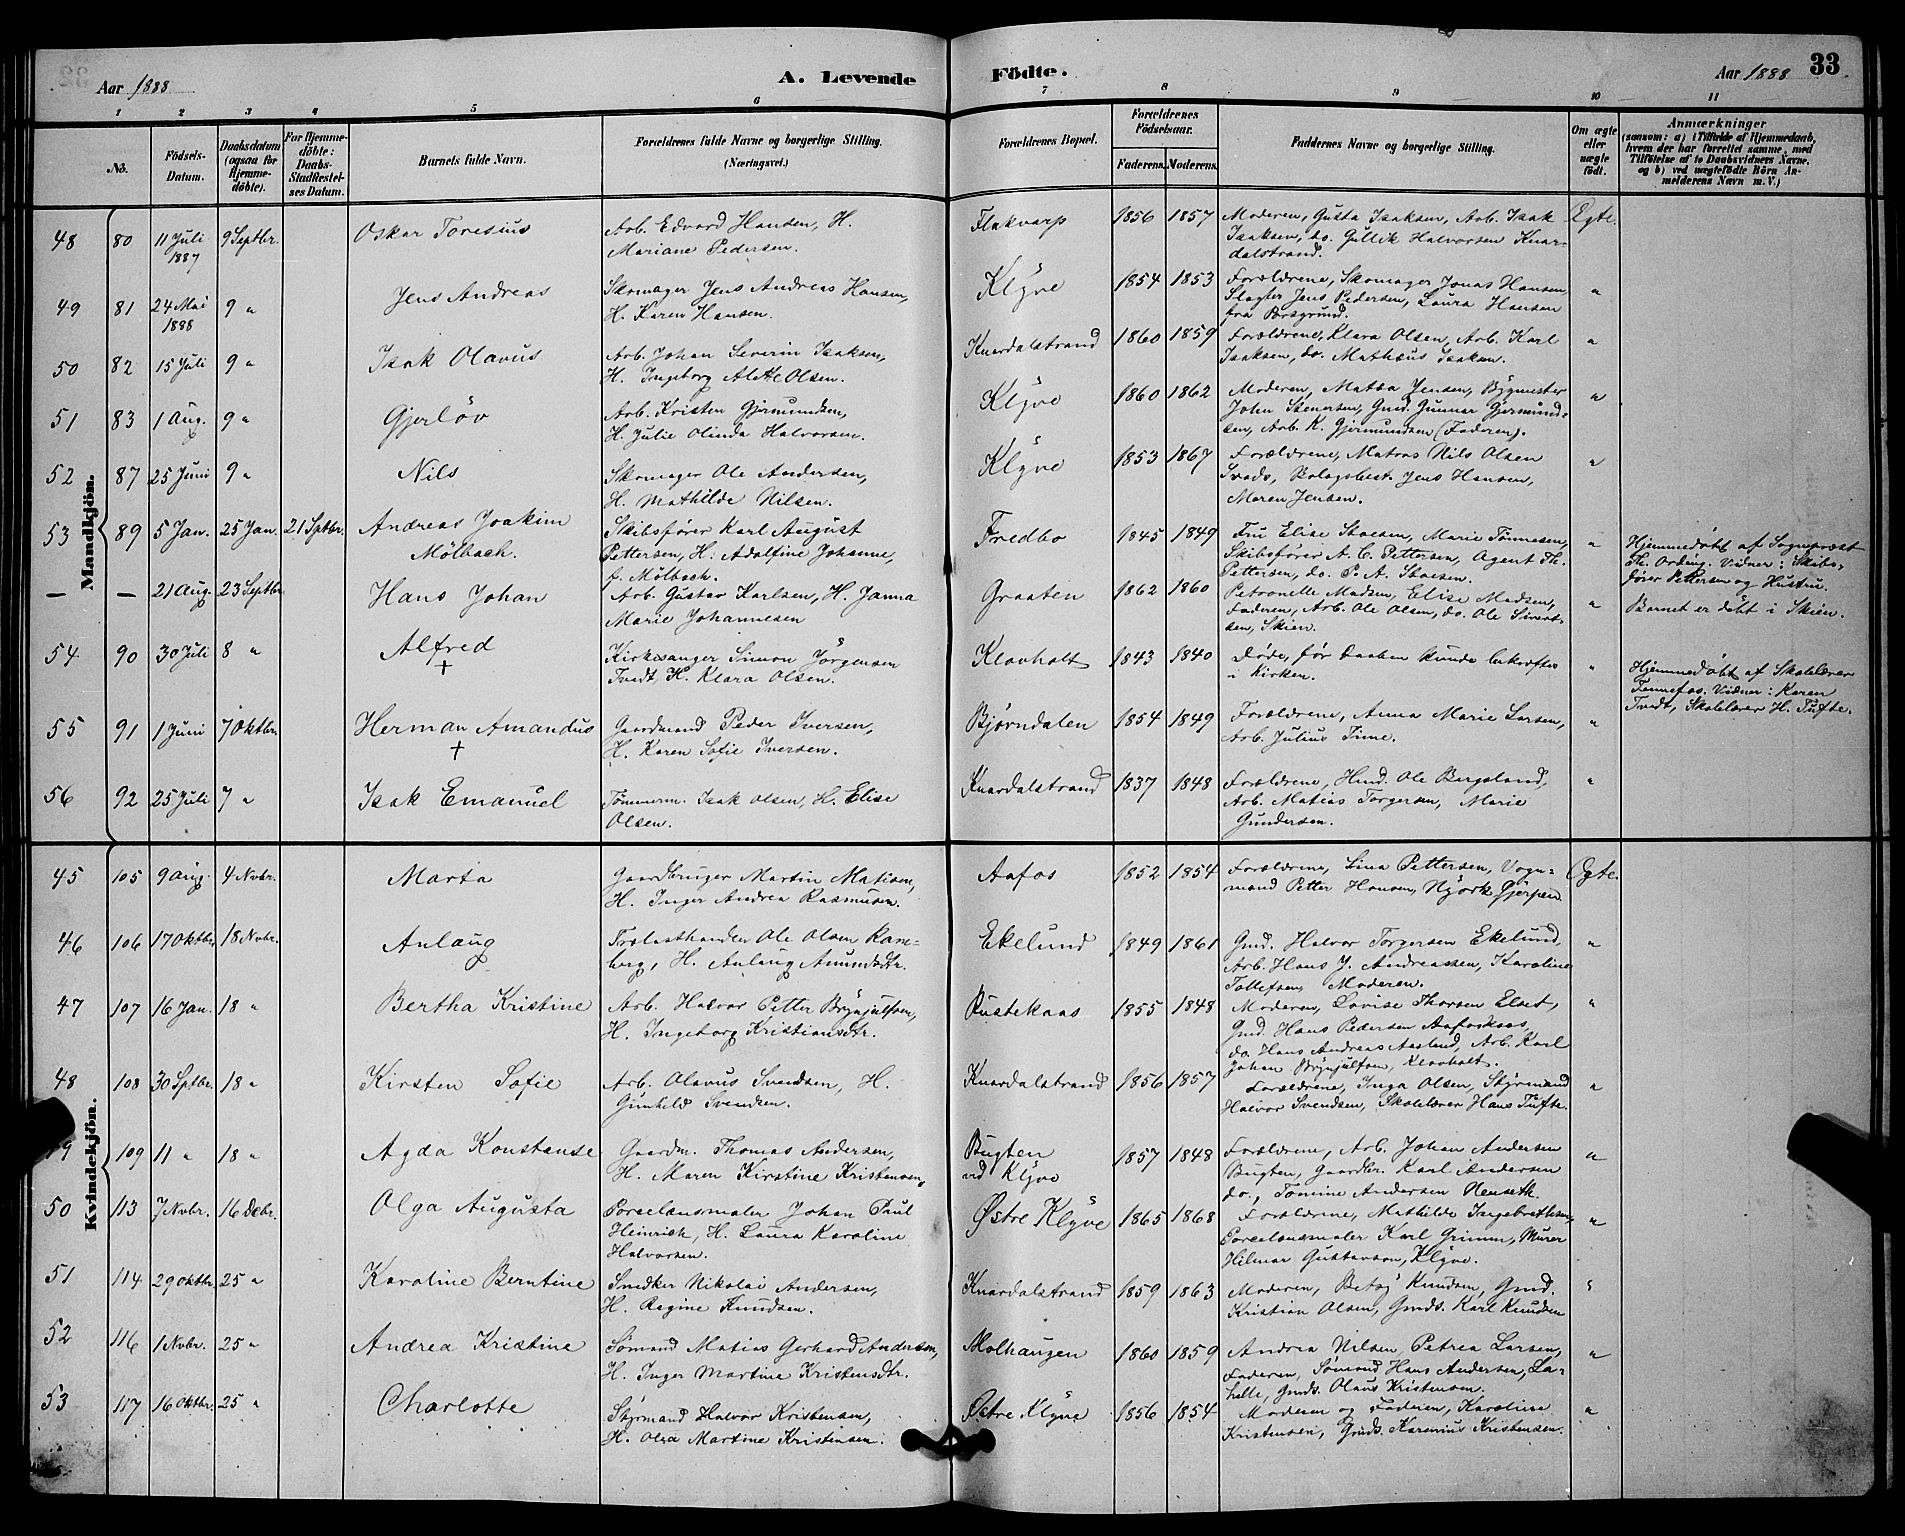 Aar 1888 A. Levende Födte. Aar 1888 33
1 2 3 4 5 6 7 8 9 10 11
No. Födsels-Datum. Daabsdatum (ogsaa for Hjemme-döbte). For Hjemme-döbte: Daabs-Stadfæstel-ses Datum. Barnets fulde Navn. Forældrenes fulde Navne og borgerlige Stilling. (Næringsvei.) Forældrenes Bopæl. Forældrenes Födselsaar. Faderens. Moderens. Faddernes Navne og borgerlige Stilling. Om ægte eller uægte födt. Anmærkninger (saasom: a) i Tilfælde af Hjemmedaab, hvem der har forrettet samme, med Tilföielse af to Daabsvidners Navne, og b) ved uægtefödte Börn An-melderens Navn m. V.)
Mandkjön.
48 80 11 Juli 1887 9 Septbr. Oskar Toresius Arb. Edvard Hansen, H. Mariane Pedersen. Flakvarp 1856 1857 Moderen, Gusta Isaksen, Arb. Isak Isaksen, do. Gullik Halvorsen Knar-dalstrand. Egte.
49 81 24 Mai 1888 9 " Jens Andreas Skomager Jens Andreas Hansen, H. Karen Hansen. Klyve 1854 1853 Forældrene, Skomager Jonas Hansen, Slagter Jens Pedersen, Laura Hansen fra Porsgrund. "
50 82 15 Juli 9 " Isak Olavus Arb. Johan Severin Isaksen, H. Ingeborg Alette Olsen. Knardalstrand 1860 1859 Forældrene, Klara Olsen, Arb. Karl Isaksen, do. Mathæus Isaksen. "
51 83 1 Aug. 9 " Gjerløv Arb. Kristen Gjermundsen, H. Julie Olinda Halvorsen. Klyve 1860 1862 Moderen, Matea Jensen, Bygmester John Stenersen, Gmd. Gunnar Gjermund-sen, Arb. K. Gjermundsen (Faderen). "
52 87 25 Juni 9 " Nils Skomager Ole Andersen, H. Mathilde Nilsen. Klyve 1853 1867 Forældrene, Matros Nils Olsen Jens Hansen, Maren Jensen. "
53 89 5 Jan. 25 Jan. 21 Sptbr. Andreas Joakim Mölbach. Skibsfører Karl August Pettersen, H. Adolfine Johanne, f. Mölbach. Fredbo 1845 1849 Fru Elise Stoesen, Marie Tönnesen, Skibsfører A. C. Pettersen, Agent Th. Pettersen, do. P. A. Stoesen. " Hjemmedøbt af Sognepræst Th. Ording. Vidner: Skibs-fører Pettersen og Hustru.
— — 21 Aug. 23 Septbr. Hans Johan Arb. Gustav Karlsen, H. Janna Marie Johannesen Graaten 1862 1860 Petronelle Madsen, Elise Madsen, Faderen, Arb. Ole Olsen, do. Ole Sivert-sen, Skien. " Barnet er døbt i Skien.
54 90 30 Juli 8 " Alfred + Kirkesanger Simon Jörgensen Tvedt, H. Klara Olsen. Klovholt 1843 1840 Døde, før Daaben kunde bekræftes i Kirken. " Hjemmedøbt af Skolelærer Tennefos. Vidner: Karen Tvedt, Skolelærer H. Tufte.
55 91 1 Juni 7 Oktbr. Herman Amandus + Gaardmand Peder Iversen, H. Karen Sofie Iversen. Bjørndalen 1854 1849 Forældrene, Anna Marie Larsen, Arb. Julius Tinne. "
56 92 25 Juli 7 " Isak Emanuel Tømmerm. Isak Olsen, H. Elise Olsen. Knardalstrand 1837 1848 Forældrene, Hmd. Ole Bergsland, Arb. Matias Torgersen, Marie Gundersen. "
Kvindekjön.
45 105 9 Aug. 4 Novbr. Marta Gaardbruger Martin Matisen, H. Inger Andrea Rasmussen. Aafos 1852 1854 Forældrene, Lina Pettersen, Vogn-mand Petter Hansen, Nyørk Gjerpen Egte.
46 106 17 Oktbr. 18 Nvbr. Anlaug Trælasthandler Ole Olsen Ram-berg, H. Anlaug Amundsdtr. Ekelund 1849 1861 Gmd. Halvor Torgersen Ekelund, Arb. Hans J. Andreassen, Karoline Tollefsen, Moderen. "
47 107 16 Jan. 18 " Bertha Kristine Arb. Halvor Petter Brynjulfsen, H. Ingeborg Kristiansdtr. Rustekaas 1855 1848 Moderen, Lovise Thorsen Elset, Gmd. Hans Pedersen Aafoskaas, do. Hans Andreas Aaslund, Arb. Karl Johan Brynjulfsen, Klovholt. "
48 108 30 Sptbr. 18 " Kirsten Sofie Arb. Olavus Svendsen, H. Gunhild Svendsen. Knardalstrand 1856 1857 Forældrene, Inga Olsen, Styrmand Halvor Svendsen, Skolelærer Hans Tufte. "
109 11 " 18 " Agda Konstanse Gaardm. Thomas Andersen, H. Maren Kirstine Kristensen, Bugten ved Klyve 1857 1848 Forældrene, Arb. Johan Andersen Bugten, Gaardbr. Karl Andersen do., Tomine Andersen Henseth. "
50 113 7 Nvbr. 16 Debr. Olga Augusta Porcelænsmaler Johan Paul Heinrich, H. Laura Karoline Halvorsen. Østre Klyve 1865 1868 Forældrene, Mathilde Ingebrethsen, Porcelænsmaler Karl Grimm, Murer Hilmar Gustavsen, Klyve. "
51 114 29 Oktbr. 25 " Karoline Berntine Snedker Nikolai Andersen, H. Regine Knudsen. Knardalstrand 1859 1863 Moderen, Betsy Knudsen, Gmd. Kristian Olsen, Gmds. Karl Knudsen "
52 116 1 Nvbr. 25 " Andrea Kristine Sømand Matias Gerhard Andersen, H. Inger Martine Kristensdtr. Molhaugen 1860 1859 Andrea Nilsen, Petrea Larsen, Faderen, Sømand Hans Andersen, La-helle, Gmds. Olaus Kristensen. "
53 117 16 Oktbr. 25 " Charlotte Styrmand Halvor Kristensen, H. Olea Martine Kristensen. Østre Klyve 1856 1854 Moderen og Faderen, Karoline Kristensen, Gmds. Karenius Kristensen. "